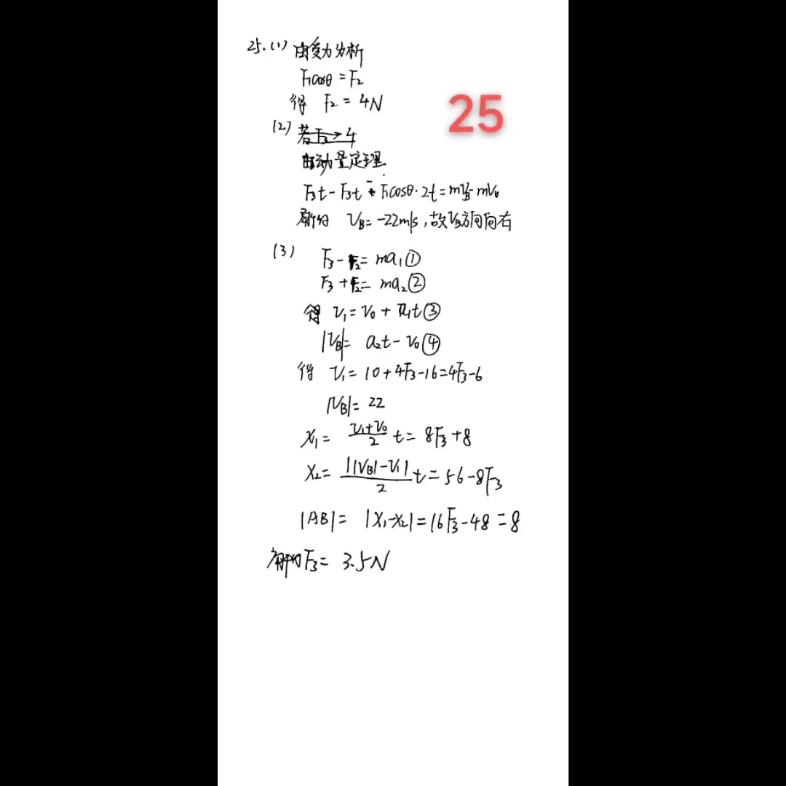 25.(1) 由受力分析
F₁cosθ = F₂
得 F₂ = 4N
25
(2) 若F₂→4
由动量定理
F₃t - F₃t - F₁cosθ·2t = mv_B - mv₀
解得 v_B = -22m/s, 故v_B方向向右
(3) F₃ - F₂ = ma₁①
F₃ + F₂ = ma₂②
得 v₁ = v₀ + a₁t③
|v_B| = a₂t - v₀④
得 v₁ = 10+4F₃-16=4F₃-6
|v_B| = 22
x₁ = (v₁+v₀)/2 t = 8F₃+8
x₂ = ||v_B|-v₁|/2 t = 56-8F₃
|AB| = |x₁-x₂| = 16F₃-48 = 8
解得F₃ = 3.5N